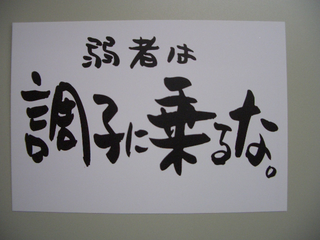 弱者は
調子に乗るな。